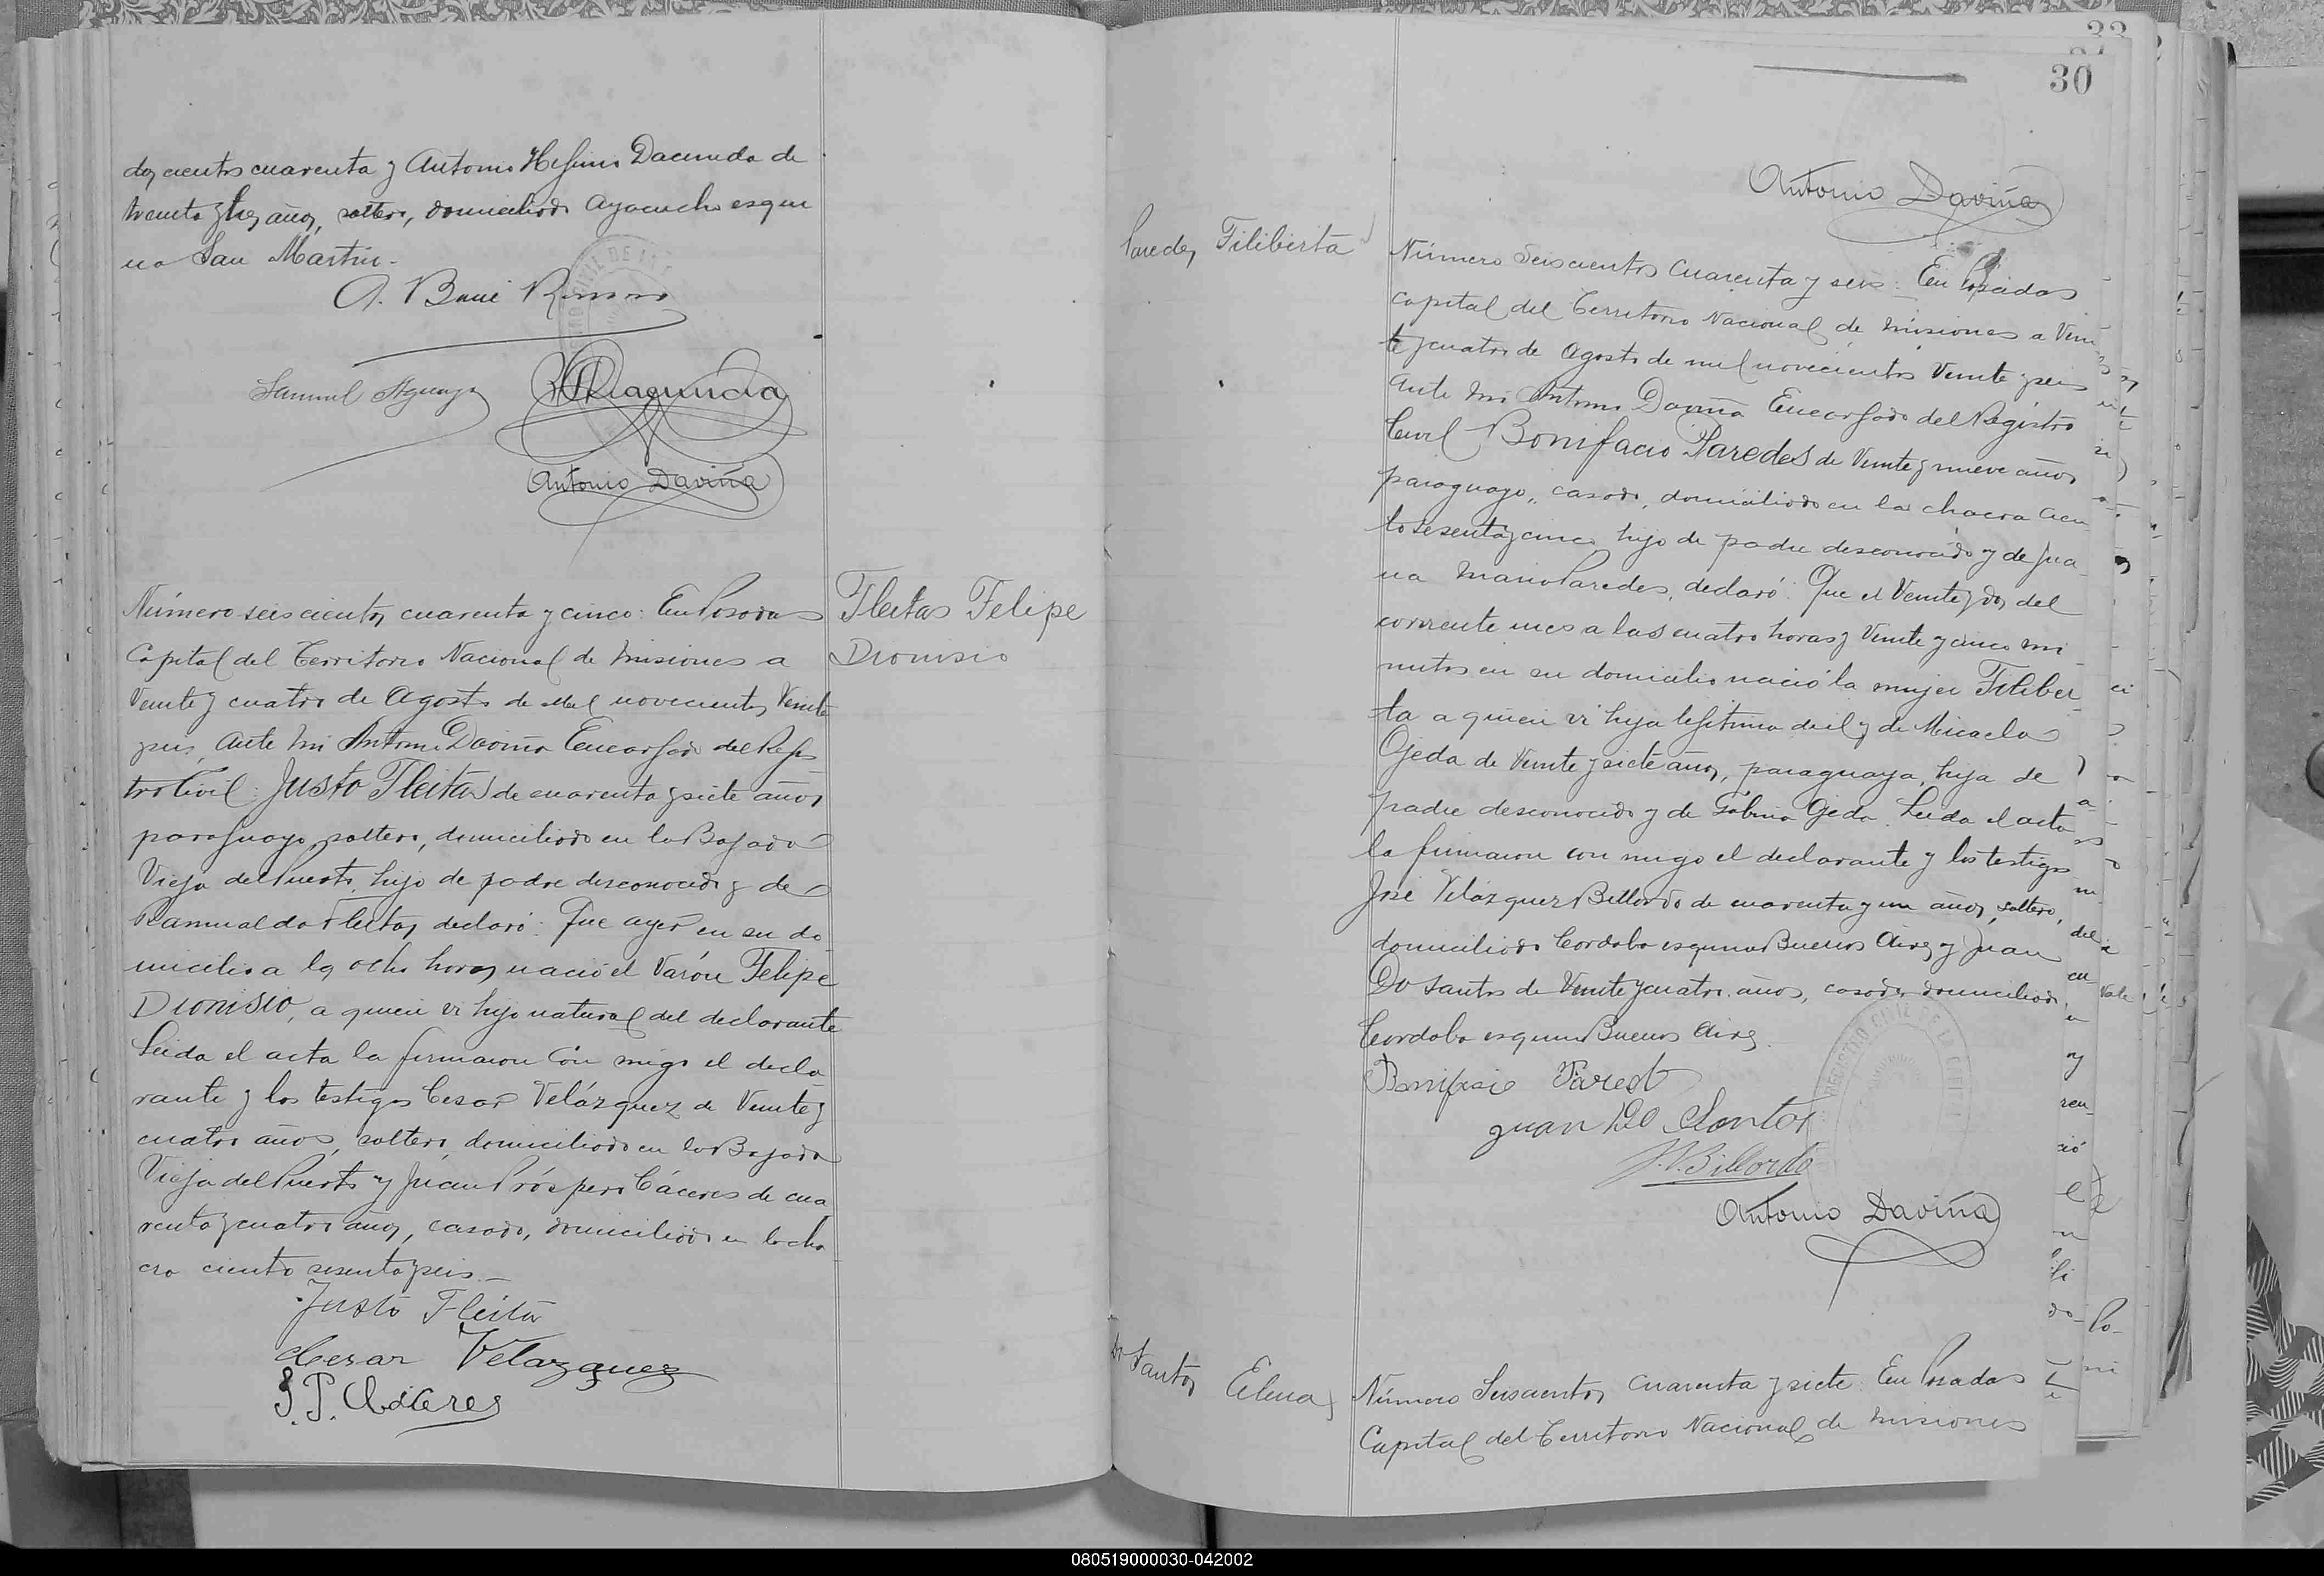 doscientos cuarenta y Antonio Higinio Dacunda de
treinta y tres años, soltero, domiciliado Ayacucho esqui
na San Martín.-
Samuel Aguayo
Antonio Daviña
Número seiscientos cuarenta y cinco: En Posadas
Capital del Territorio Nacional de Misiones a
Veinte y cuatro de Agosto de mil novecientos Veinte
y seis, ante mi Antonio Daviña Encargado del Regis
tro Civil: Justo Fleitas de cuarenta y siete años
paraguayo, soltero, domiciliado en la Bajada
Vieja del Puerto, hijo de padre desconocido y de
Ramualda Fleitas, declaró: Que ayer en su do
micilio a las ocho horas nació el Varón Felipe
Dionisio, a quien vi hijo natural del declarante
Leida el acta la firmaron con migo el decla
rante y los testigos Cesar Velázquez de Veinte y
cuatro años, soltero, domiciliado en la Bajada
Vieja del Puerto y Juan Próspero Cáceres de cua
renta y cuatro años, casado, domiciliado en la cha
cra ciento sesenta y seis.-
Justo Fleita
Cesar Velazquez
J. P. Cáceres
Fleitas Felipe
Dionisio
33
30
Antonio Daviña
Paredes Filiberta
Número Seiscientos Cuarenta y seis: En Posadas
Capital del Territorio Nacional de Misiones a Vein
te y cuatro de Agosto de mil novecientos Veinte y seis
ante mi Antonio Daviña Encargado del Registro
Civil Bonifacio Paredes de Veinte y nueve años
paraguayo, casado, domiciliado en la chacra cien
to sesenta y cinco hijo de padre desconocido y de Jua
na Maria Paredes, declaró: Que el Veinte y dos del
corriente mes a las cuatro horas y Veinte y cinco mi
nutos en su domicilio nació la mujer Filiber
ta a quien vi hija legitima de él y de Micaela
Ojeda de Veinte y siete años, paraguaya, hija de
padre desconocido y de Gabina Ojeda. Leida el acta
la firmaron con migo el declarante y los testigos
José Velázquez Billordo de cuarenta y un años, soltero,
domiciliado Cordoba esquina Buenos Aires y Juan
Do Santos de Veinte y cuatro años, casado, domiciliado
Cordoba esquina Buenos Aires.
Bonifasio Pared
Juan Do Santos
J. V. Billordo
Antonio Daviña
Do Santos Elena
Número Seiscientos cuarenta y siete: En Posadas
Capital del Territorio Nacional de Misiones
080519000030-042002